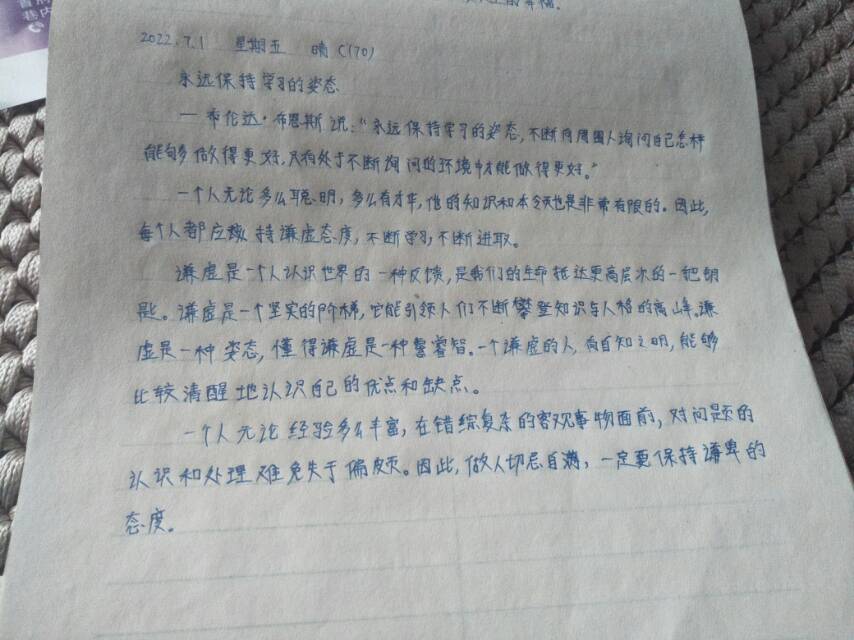 巷内
2022.7.1 星期五 晴 C(70)
永远保持学习的姿态
— 布伦达·布恩斯说:"永远保持学习的姿态,不断向周围人询问自己怎样
能够做得更好,只有处于不断询问的环境中才能做得更好。"
一个人无论多么聪明,多么有才华,他的知识和本领也是非常有限的。因此,
每个人都应该持谦虚态度,不断学习,不断进取。
谦虚是一个人认识世界的一种反馈,是我们的生命抵达更高层次的一把钥
匙。谦虚是一个坚实的阶梯,它能引领人们不断攀登知识与人格的高峰。谦
虚是一种姿态,懂得谦虚是一种睿智。一个谦虚的人,有自知之明,能够
比较清醒地认识自己的优点和缺点。
一个人无论经验多么丰富,在错综复杂的客观事物面前,对问题的
认识和处理难免失于偏颇。因此,做人切忌自满,一定要保持谦卑的
态度。